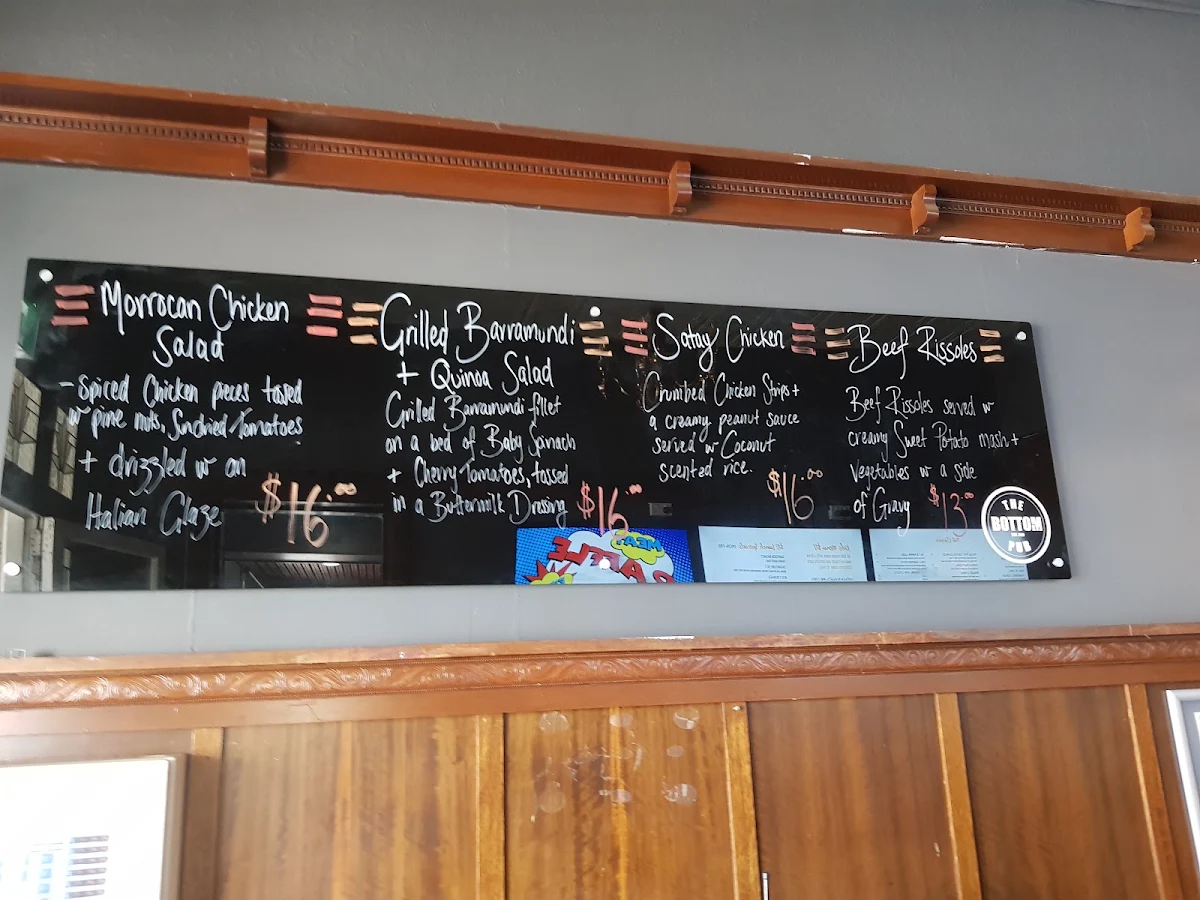 Morrocan Chicken
Salad
- Spiced Chicken pieces tossed
w pine nuts, Sundried Tomatoes
+ drizzled w an
Italian Glaze
$16.00
Grilled Barramundi
+ Quinoa Salad
Grilled Barramundi fillet
on a bed of Baby Spinach
+ Cherry Tomatoes, tossed
in a Buttermilk Dressing
$16.00
Satay Chicken
Crumbed Chicken Strips +
a creamy peanut sauce
served w Coconut
scented rice.
$16.00
Beef Rissoles
Beef Rissoles served w
creamy Sweet Potato mash +
Vegetables w a side
of Gravy
$13.00
THE
BOTTOM
PUB
MEAT
RAFFLE